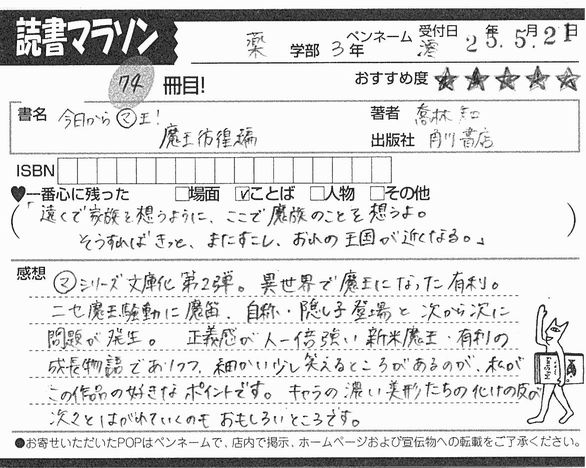 読書マラソン
薬学部 3年 ペンネーム 湊 受付日 23年5月21日
74冊目! おすすめ度 ★★★★★
書名 今日からマ王! 著者 喬林知
魔王彷徨編 出版社 角川書店
ISBN
♥一番心に残った □場面 ☑ことば □人物 □その他
「遠くで家族を想うように、ここで魔族のことを想うよ。
そうすればきっと、またすこし、おれの王国が近くなる。」
感想 マシリーズ文庫化第2弾。異世界で魔王になった有利。
ニセ魔王騒動に魔笛、自称・隠し子登場と次から次に
問題が発生。正義感が人一倍強い新米魔王・有利の
成長物語でありつつ、細かい少し笑えるところがあるのが、私が
この作品の好きなポイントです。キャラの濃い美形たちの化けの皮が
次々とはがれていくのもおもしろいところです。
●お寄せいただいたPOPはペンネームで、店内で掲示、ホームページおよび宣伝物への転載をご了承ください。